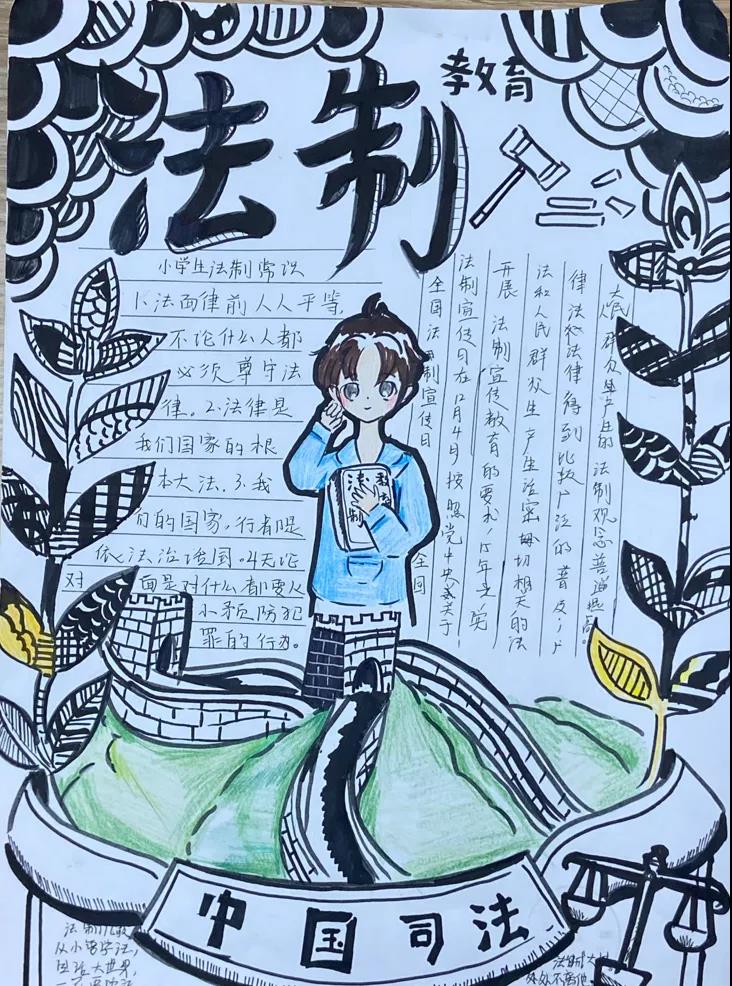 法制
教育
小学生法制常识
1、法面律前人人平等,
不论什么人都
必须尊守法
律。2.法律是
我们国家的根
本大法。3.我
们的国家,行者是
依法治国。4无论
对 面是对什么都要从
小预防犯
罪的行为。
法制
全国法制宣传日 全国
法制宣传日在12月4日 按照党中央关于
开展 法制宣传教育的要求,
法和人民群众生产生活密切相关的法
律法 法律得到 广泛的普及,
人民群众生产生的法制观念普遍提高。
中国司法
从小学法,